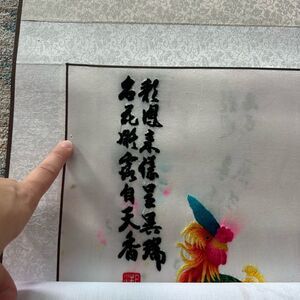 彩鳳來儀呈異瑞
名花凝露自天香